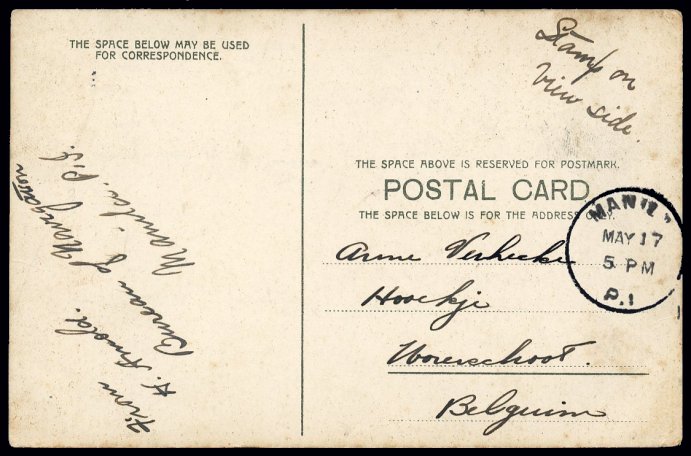 THE SPACE BELOW MAY BE USED
FOR CORRESPONDENCE.
From
H. Arnold.
Bureau of Navigation
Manila. P.I.
Stamp on
View side.
THE SPACE ABOVE IS RESERVED FOR POSTMARK.
POSTAL CARD
THE SPACE BELOW IS FOR THE ADDRESS ONLY.
MANIL
MAY 17
5 PM
P.I
Anne Verhecke
Hoeekje
Woverschoot.
Belguim